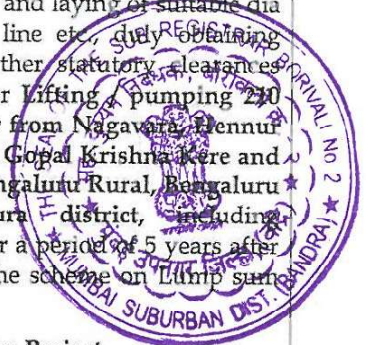 and laying of suitable dia
line etc., duly obtaining
ther statutory clearances
r Lifting , pumping 210
from Nagavara, Hennur
Gopal Krishna Kere and
ngaluru Rural, Bengaluru
ura district, including
r a period of 5 years after
he scheme on Lump sum
THE SEAL OF THE SUB REGISTRAR BORIVALI No 2
MUMBAI SUBURBAN DIST. (BANDRA)